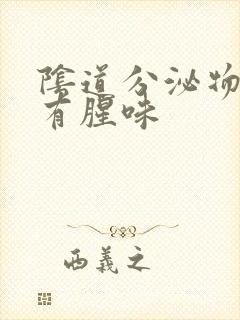 陰道分泌物
有腥味
西義之